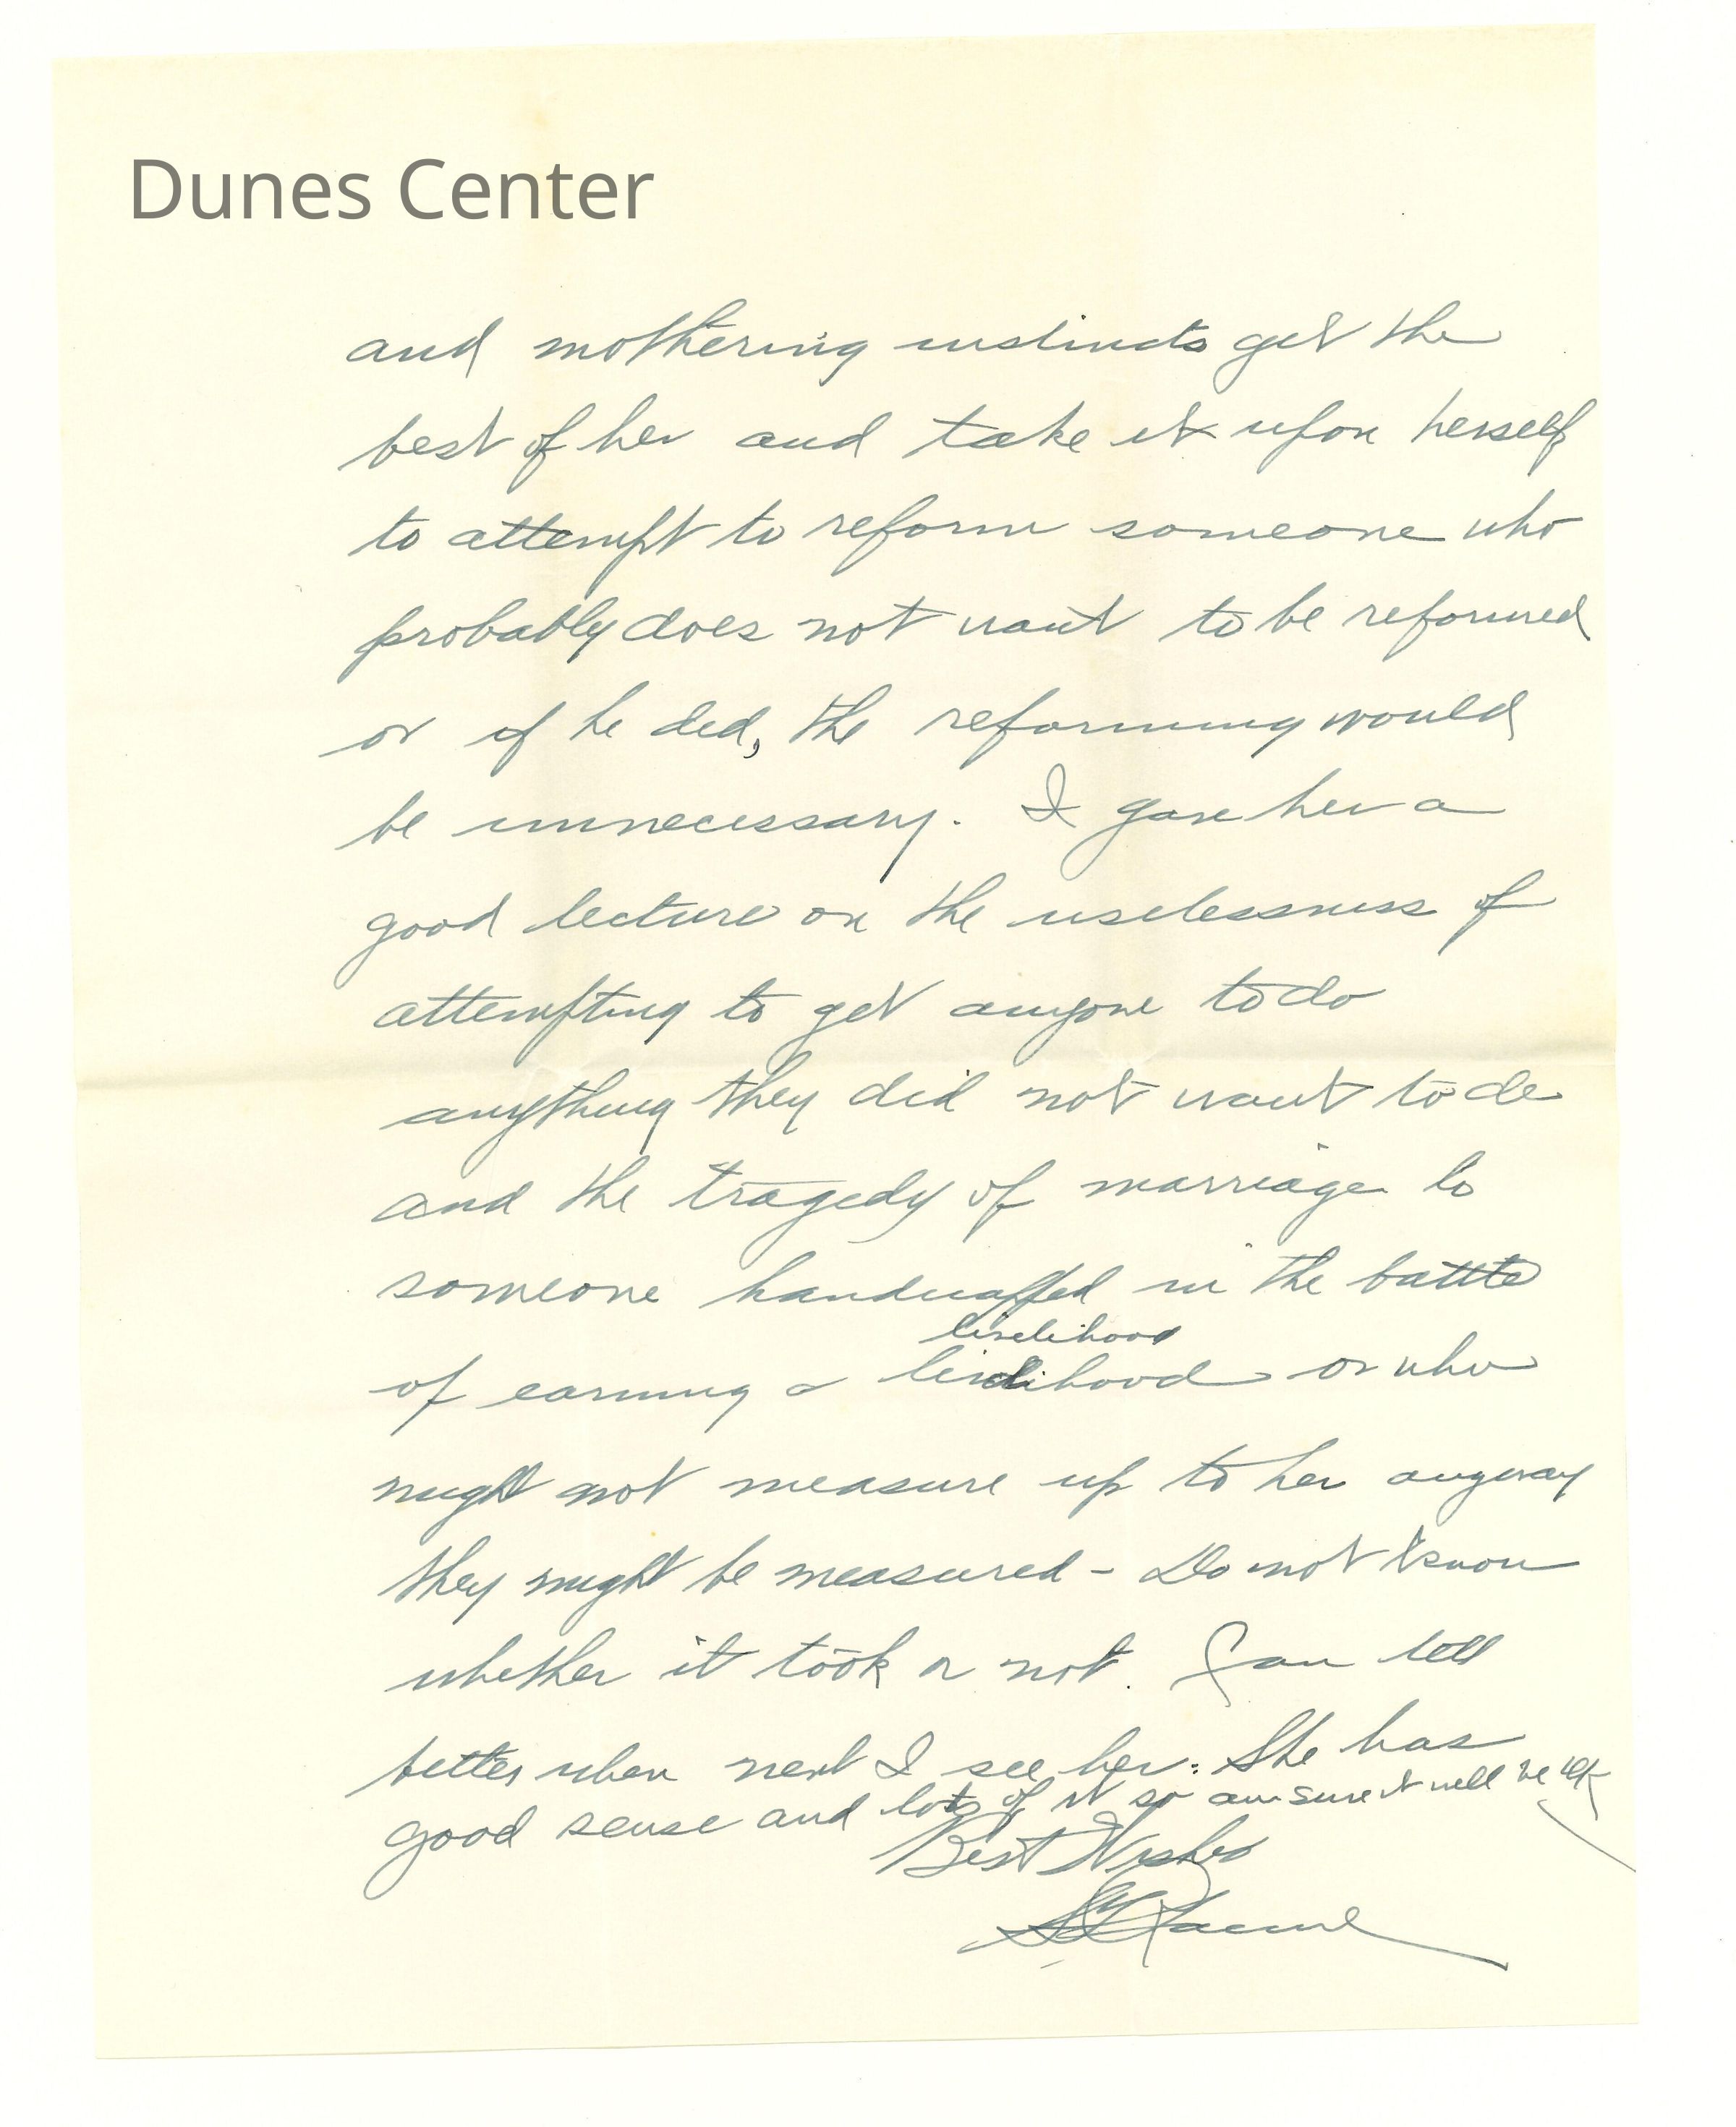 Dunes Center
and mothering instincts get the
best of her and take it upon herself
to attempt to reform someone who
probably does not want to be reformed
or if he did, the reforming would
be unnecessary. I gave her a
good lecture on the uselessness of
attempting to get anyone to do
anything they did not want to do
and the tragedy of marriage to
someone handicapped in the battle
livelihood
of earning a livelihood or who
might not measure up to her anyway
they might be measured - Do not know
whether it took or not. Can tell
better when next I see her. She has
good sense and lots of it so am sure it will be ok
Best Wishes